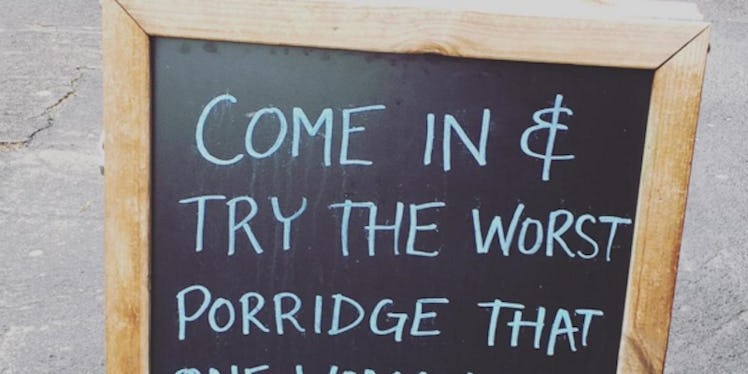 COME IN &
TRY THE WORST
PORRIDGE THAT
ONE